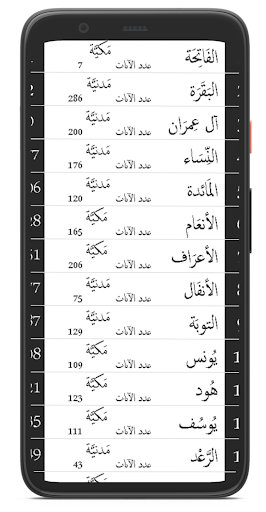 الفَاتِحَة مَكيَّة عدد الآيات 7
البَقَرَة مَدنيَّة عدد الآيات 286
آل عِمرَان مَدنيَّة عدد الآيات 200
النِّسَاء مَدنيَّة عدد الآيات 176
المَائدة مَدنيَّة عدد الآيات 120
الأنعَام مَكيَّة عدد الآيات 165
الأعرَاف مَكيَّة عدد الآيات 206
الأنفَال مَدنيَّة عدد الآيات 75
التوبَة مَدنيَّة عدد الآيات 129
يُونس مَكيَّة عدد الآيات 109
هُود مَكيَّة عدد الآيات 123
يُوسُف مَكيَّة عدد الآيات 111
الرَّعْد مَدنيَّة عدد الآيات 43
مَكيَّة